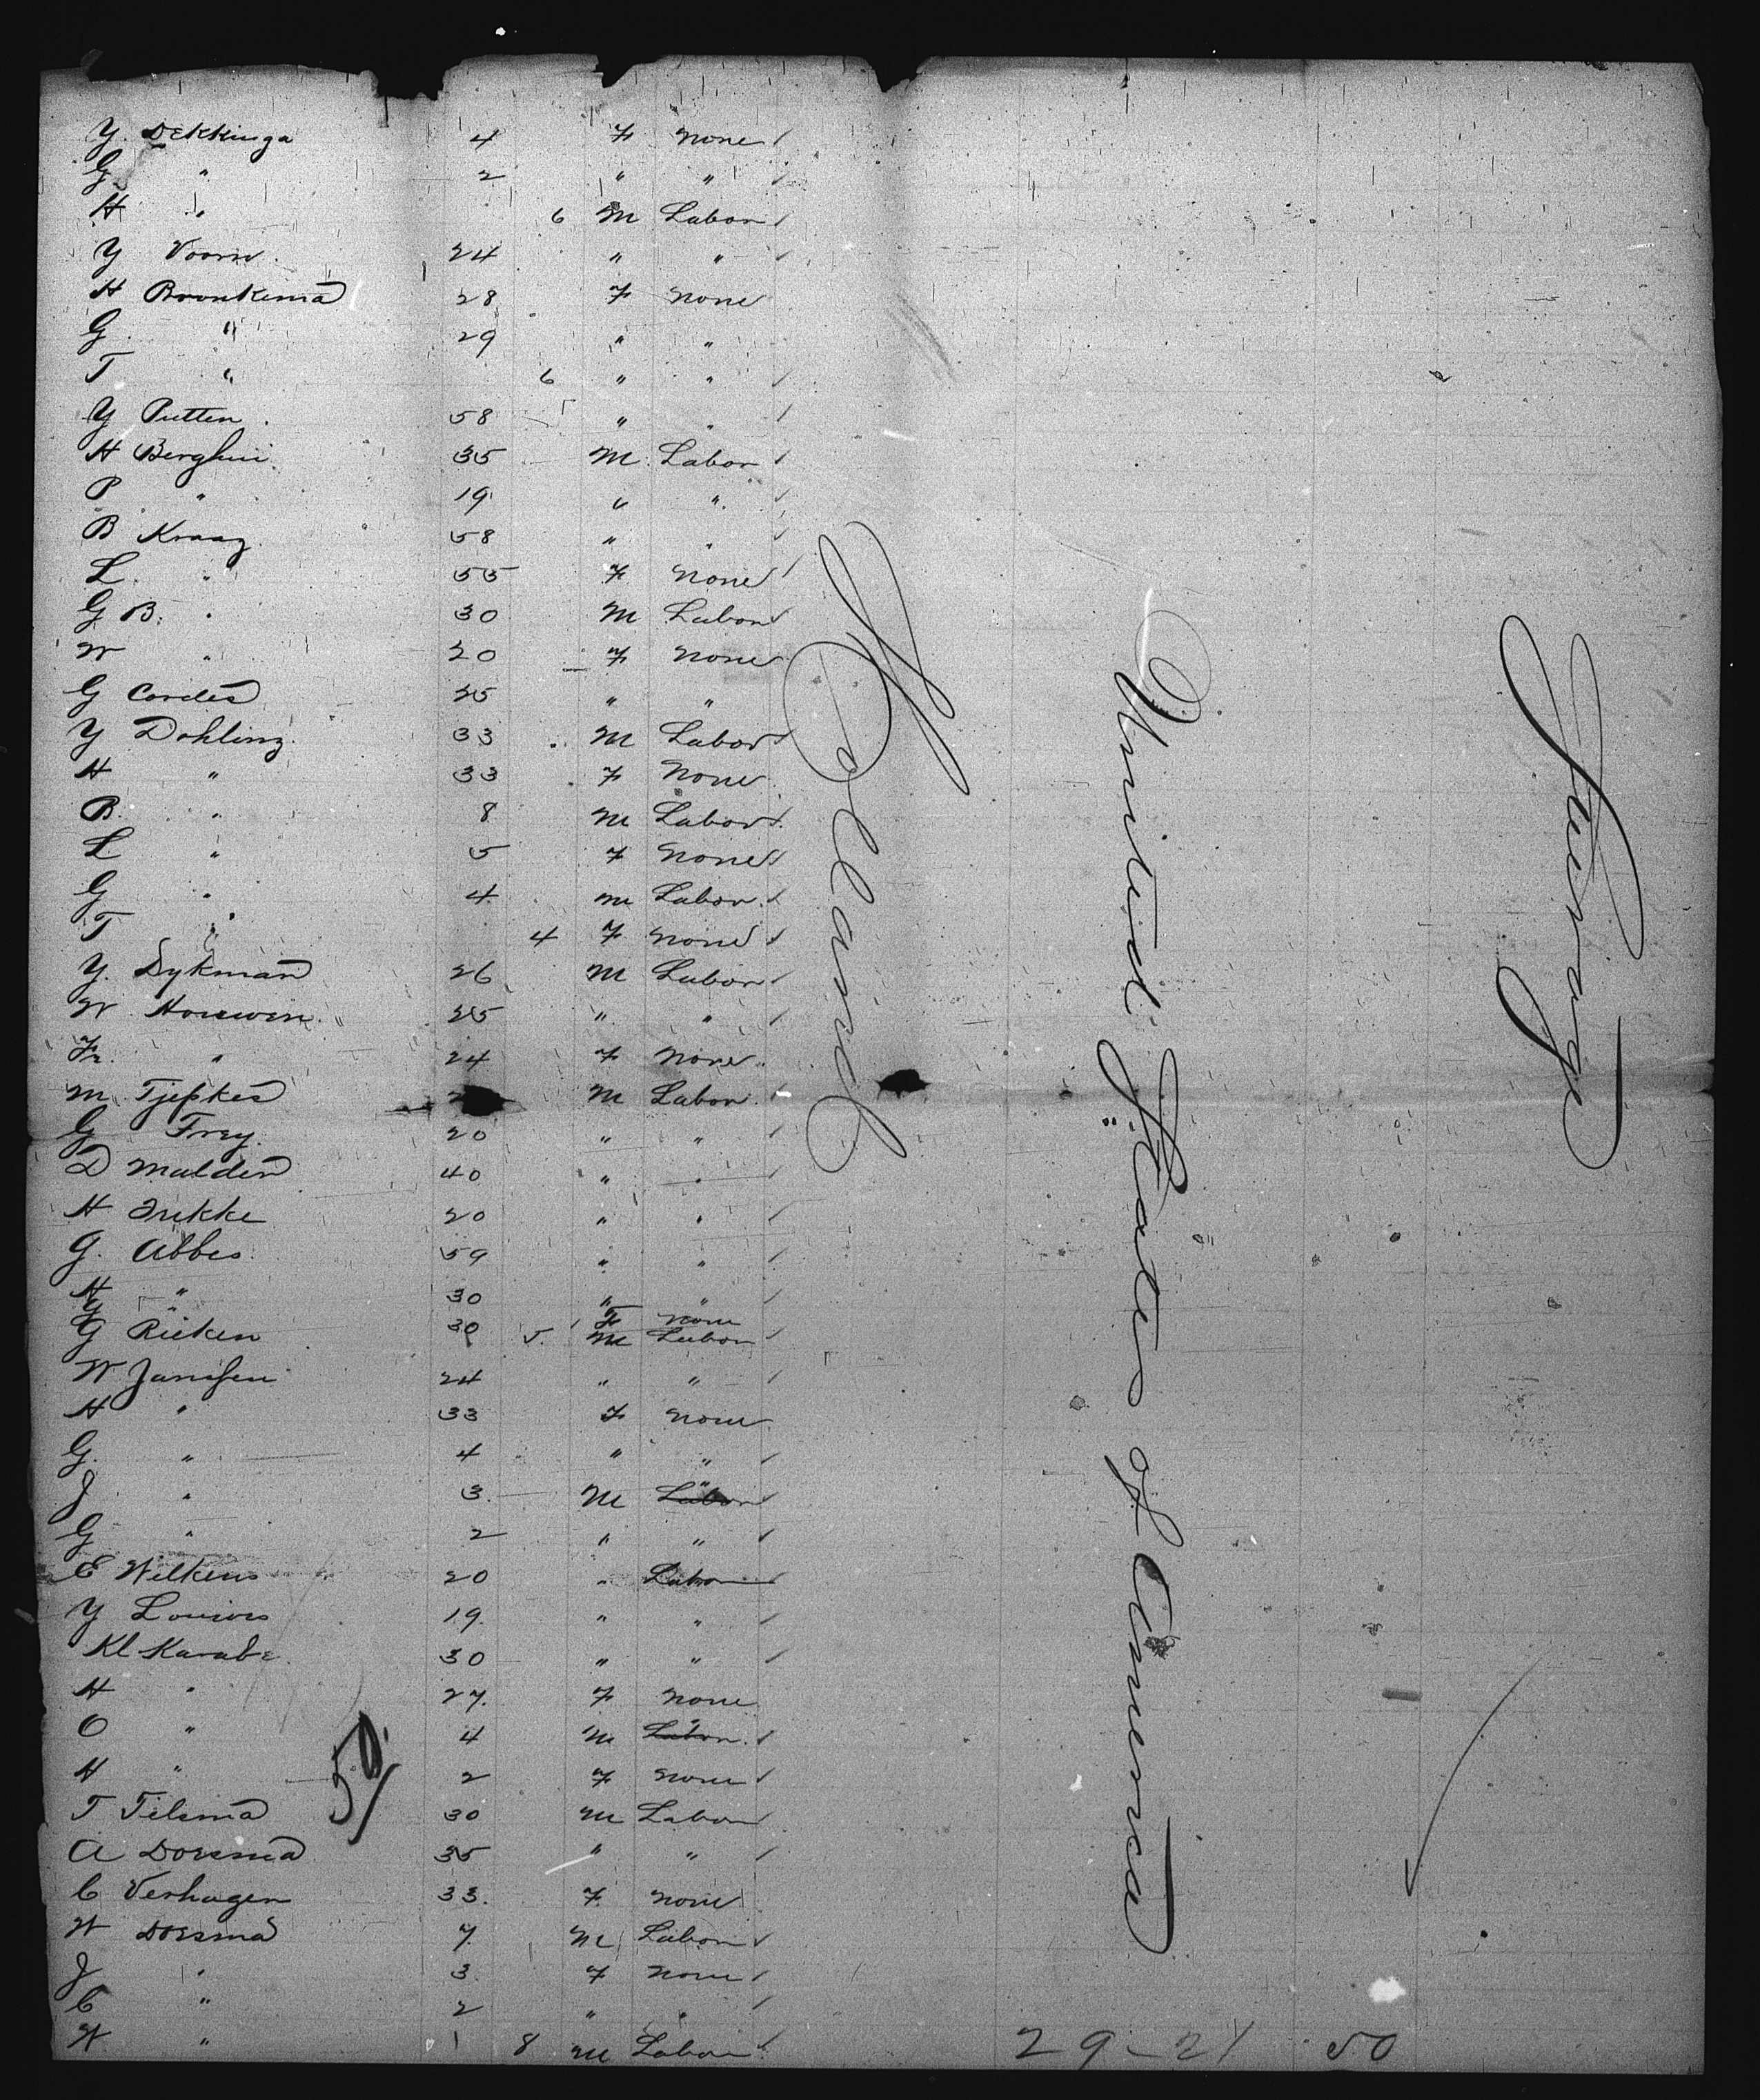 Y. Dekkinga 4 F None
G. " 2 " "
H " 6 M Labor
Y Voorn 24 " "
H Bronkema 28 F None
G " 29 " "
T " 6 " "
Y Putten 58 " "
H Berghui 35 M Labor
P " 19 " "
B Kraaz 58 " "
L. " 55 F None
G B. " 30 M Labor
W " 20 F None
G Cordes 25 " "
Y Dohling 33 M Labor
H " 33 F None
B. " 8 M Labor
L " 5 F None
G " 4 M Labor
T " 4 F None
Y. Dykman 26 M Labor
W. Houwen 25 " "
Fr. " 24 F None
M Tjepkes M Labor
G Frey 20 " "
D Mulder 40 " "
H Frekke 20 " "
G. Abbes 59 " "
H " 30 " "
Y " 30 F None
G Rieken 5 M Labor
W Janssen 24 " "
H " 33 F None
G. " 4 " "
J " 3 M Labor
G " 2 " "
E Wilkens 20 " Labor
Y Louwes 19 " "
Kl Karabe 30 " "
H " 27 F None
O " 4 M Labor
H " 2 F None
T Tilsma 30 M Labor
A Dorsma 35 " "
C Verhagen 33 F None
W Dorsma 7 M Labor
J " 3 F None
C " 2 " "
W " 1 8 M Labor
50
Holland
United States of America
Steerage
29-21 50